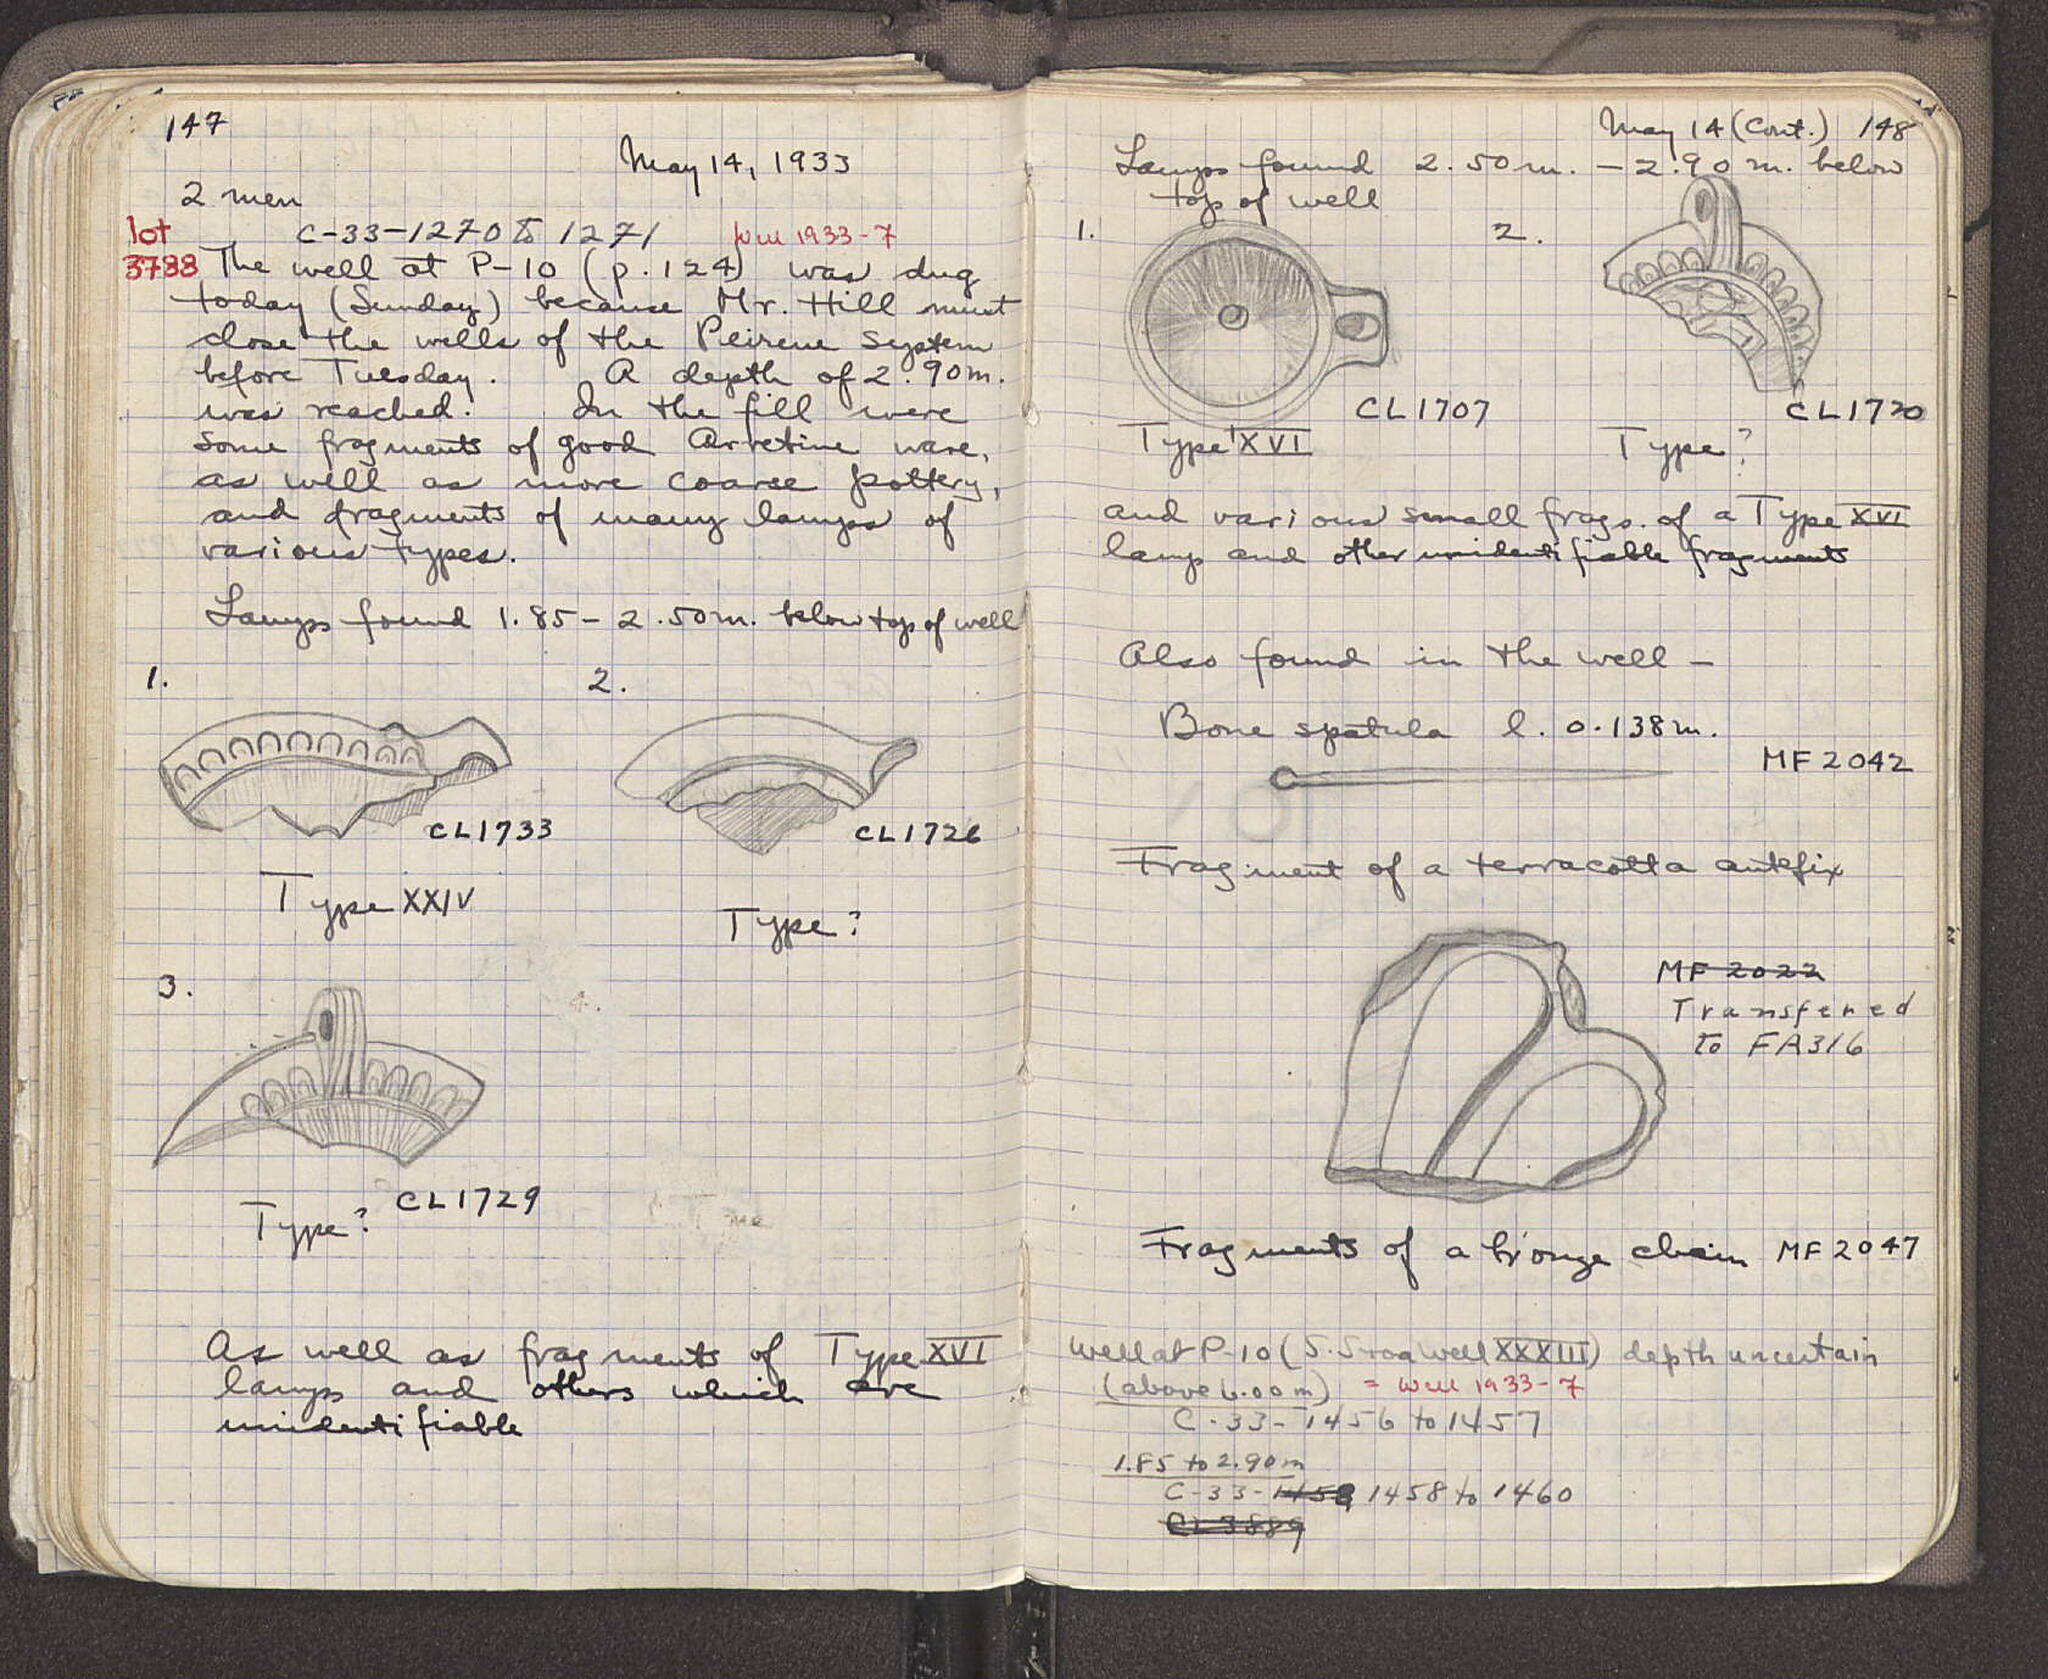 147
May 14, 1933
2 men
lot
3788
C-33-1270 to 1271
Well 1933-7
The well at P-10 (p. 124) was dug
today (Sunday) because Mr. Hill must
close the wells of the Peirene System
before Tuesday. A depth of 2.90m.
was reached. In the fill were
some fragments of good Arretine ware,
as well as more coarse pottery,
and fragments of many lamps of
various types.
Lamps found 1.85 - 2.50m. below top of well
1. 2.
CL1733 CL1726
Type XXIV
Type?
3.
CL1729
Type?
As well as fragments of Type XVI
lamps and others which are
unidentifiable
May 14 (Cont.) 148
Lamps found 2.50m. - 2.90m. below
top of well
1. 2.
CL1707 CL1720
Type XVI Type?
and various small frags. of a Type XVI
lamp and other unidentifiable fragments
Also found in the well -
Bone spatula l. 0.138m.
MF 2042
Fragment of a terracotta antefix
MF 2022
Transfered
to FA316
Fragments of a bronze chain MF 2047
Well at P-10 (S. Stoa Well XXXIII) depth uncertain
(above 6.00m) = Well 1933-7
C-33-1456 to 1457
1.85 to 2.90m
C-33-1458 1458 to 1460
CL3889